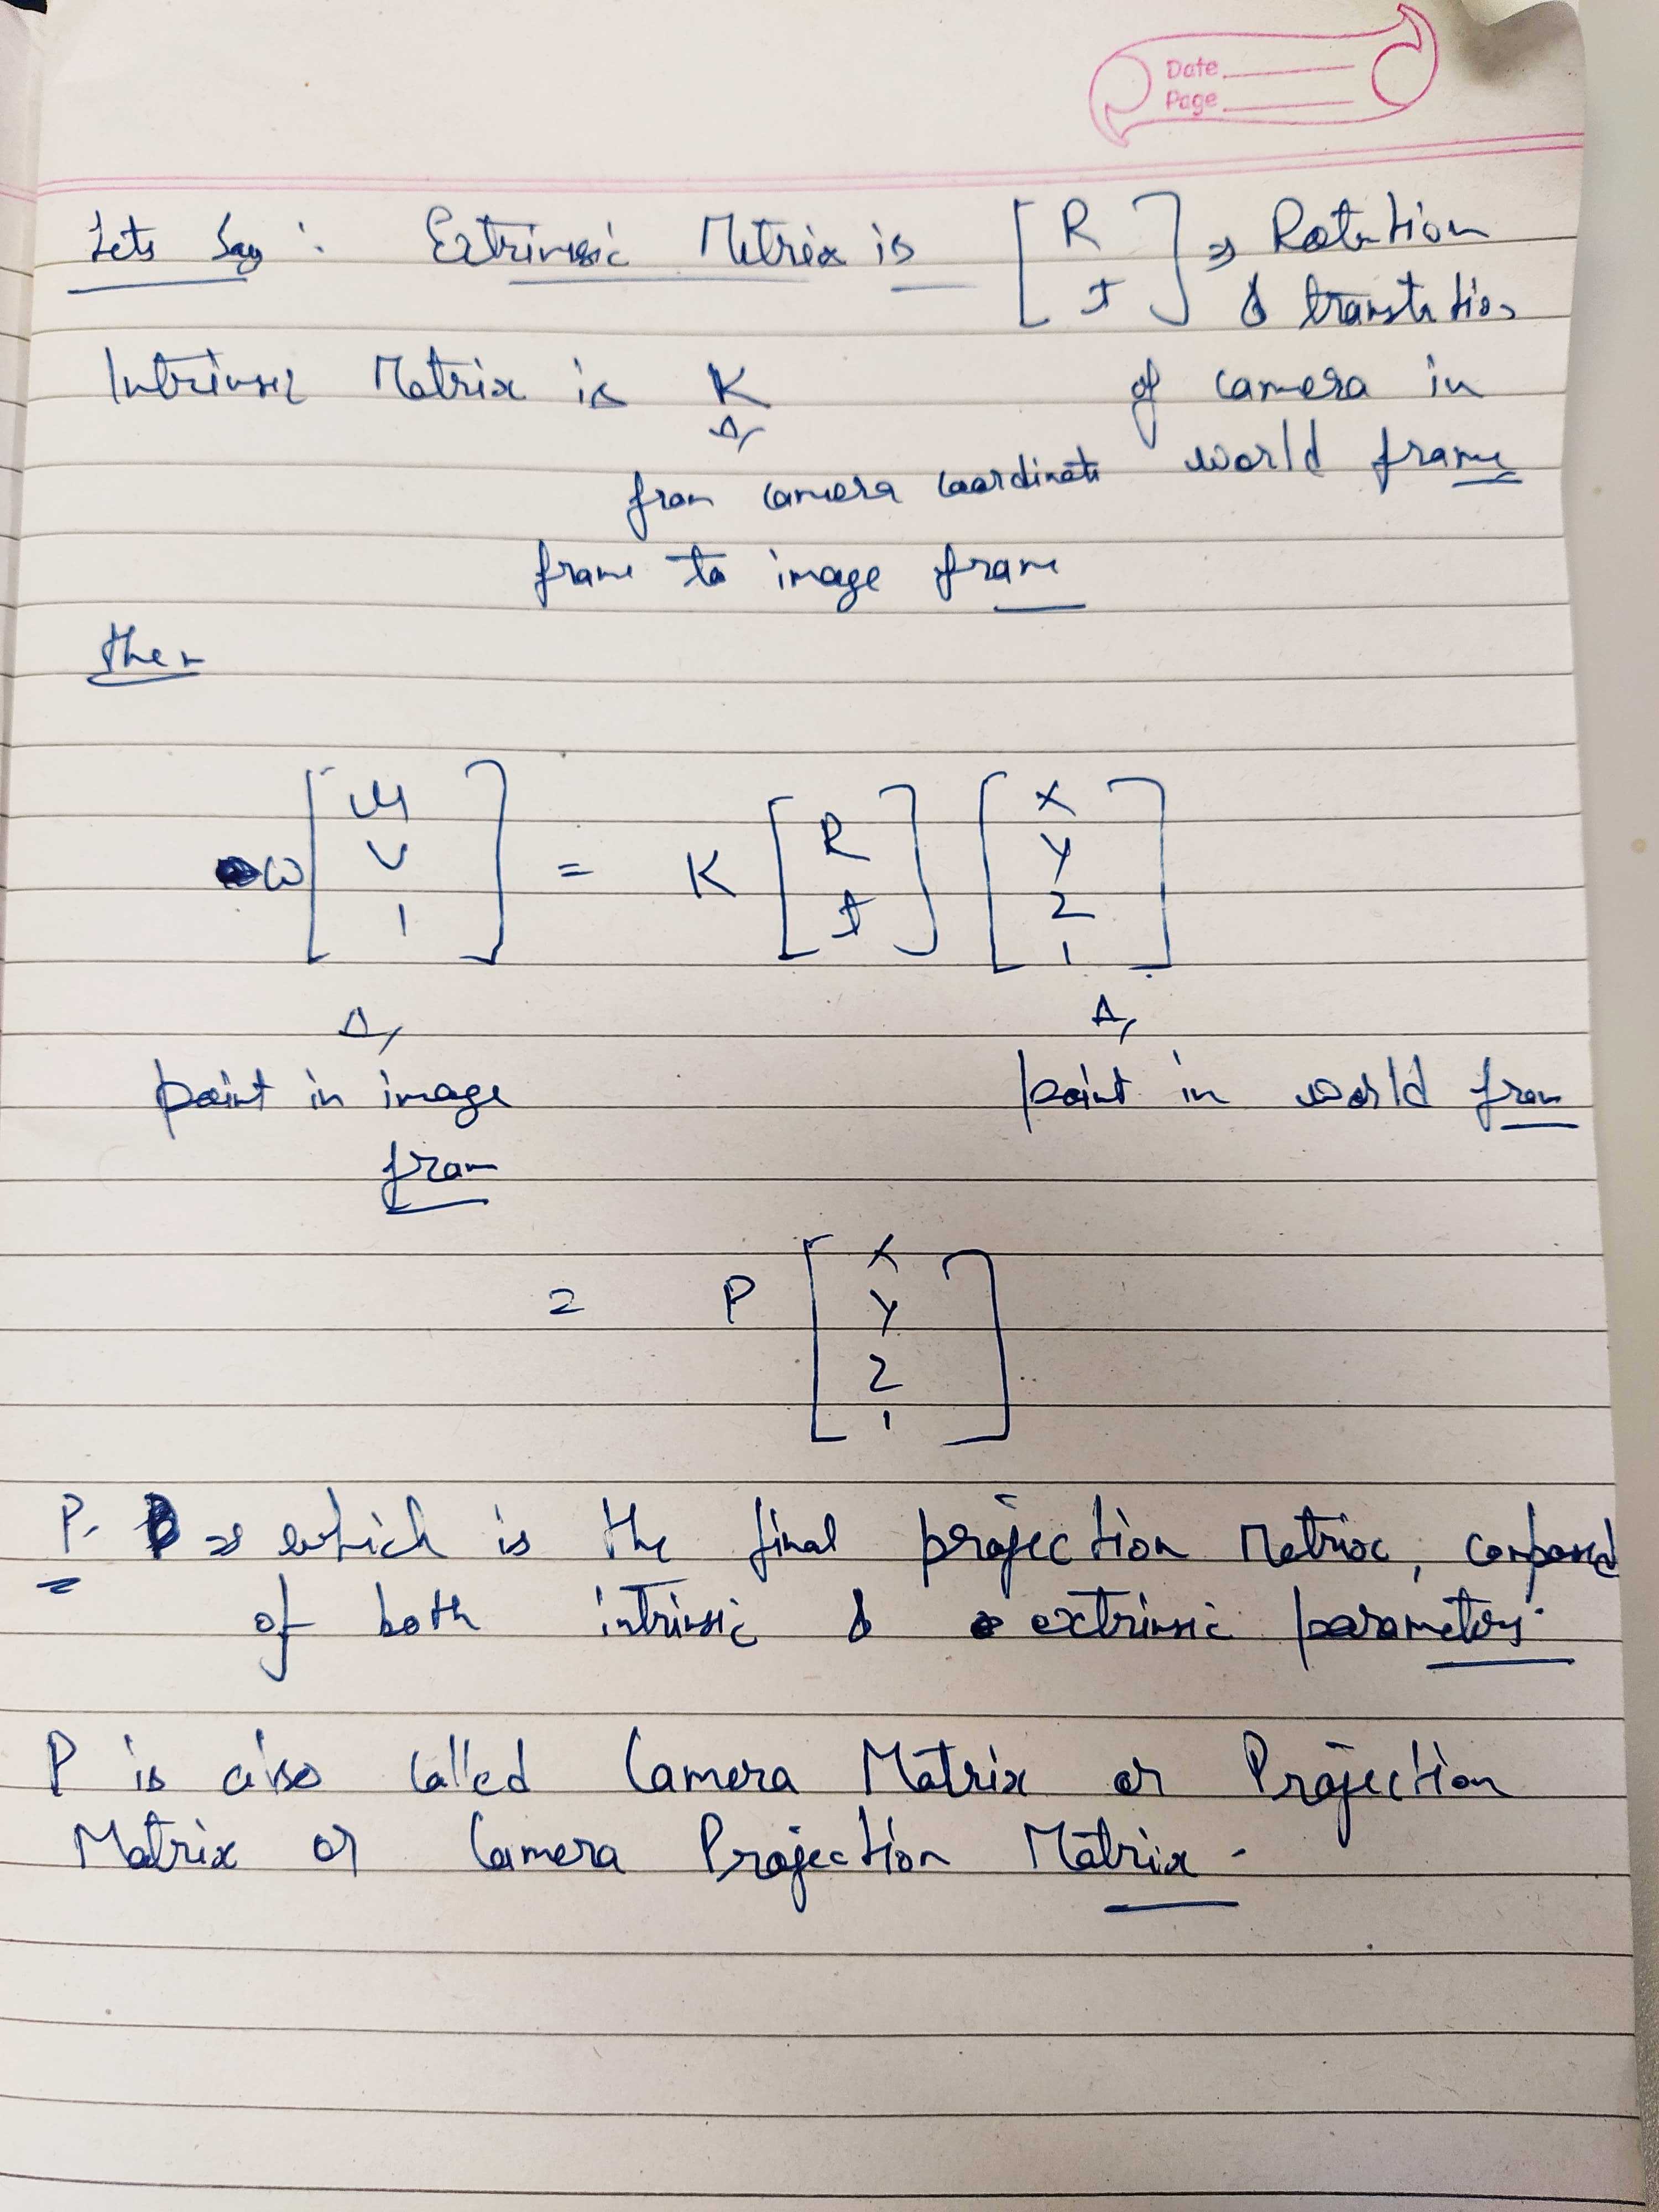 Date
Page
Lets Say : Extrinsic Metrix is [ R ] => Rotation
[ t ] & translation
Intrinsic Matrix is K of camera in
from camera coordinate world frame
frame to image frame
then
w [ u v 1 ] = K [ R t ] [ X Y Z 1 ]
point in image point in world fram
fram
= P [ X Y Z 1 ]
P - => which is the final projection Metrix, composed
of both intrinsic & extrinsic parameters.
P is also called Camera Matrix or Projection
Matrix or Camera Projection Matrix.